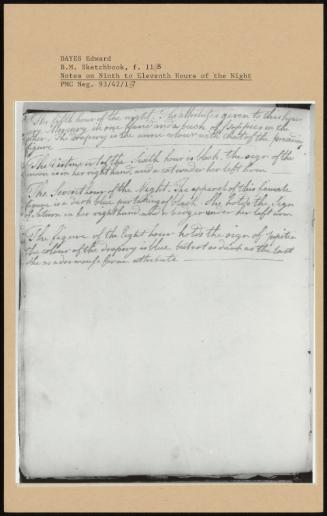 DAYES Edward
B.M. Sketchbook, f. 118
Notes on Ninth to Eleventh Hours of the Night
PMC Neg. 93/42/17
The fifth hour of the night. The attributes given to this hour
Mercury in one hand and a bunch of poppies in the
other. The drapery is the same colour with that of the preceding
figure
The Vestment of the Sixth hour is black, the sign of the
moon in her right hand, and a cat under her left arm
The Seventh hour of the Night. The apparel of this female
figure is a dark blue partaking of black. She holds the sign
of Saturn in her right hand and a badger under her left arm
The figure of the Eight hour holds the sign of Jupiter
the colour of the drapery is blue but not so dark as the last
She has a dormouse for an attribute